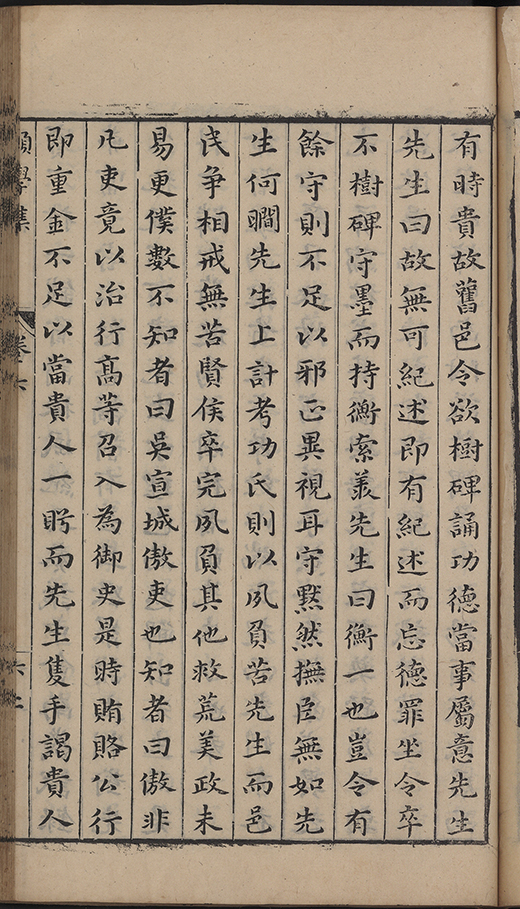 有時貴故舊邑令欲樹碑誦功德當事屬意先生
先生曰故無可紀述即有紀述而忘德罪坐令卒
不樹碑守墨而持衡索羨先生曰衡一也豈令有
餘守則不足以邪正異視耳守黙然撫臣無如先
生何瞯先生上計考功氏則以夙負苦先生而邑
民爭相戒無苦賢侯卒完夙負其他救荒美政未
易更僕數不知者曰吳宣城傲吏也知者曰傲非
凢吏竟以治行髙等召入為御史是時賄賂公行
即重金不足以當貴人一盻而先生隻手謁貴人
學集 卷六